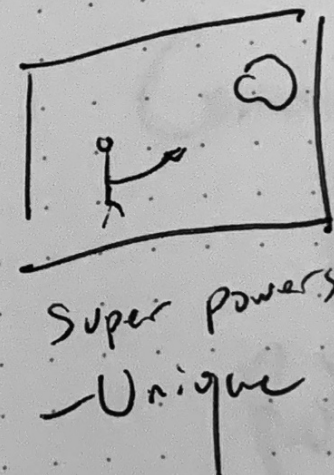 Super powers
-Unique